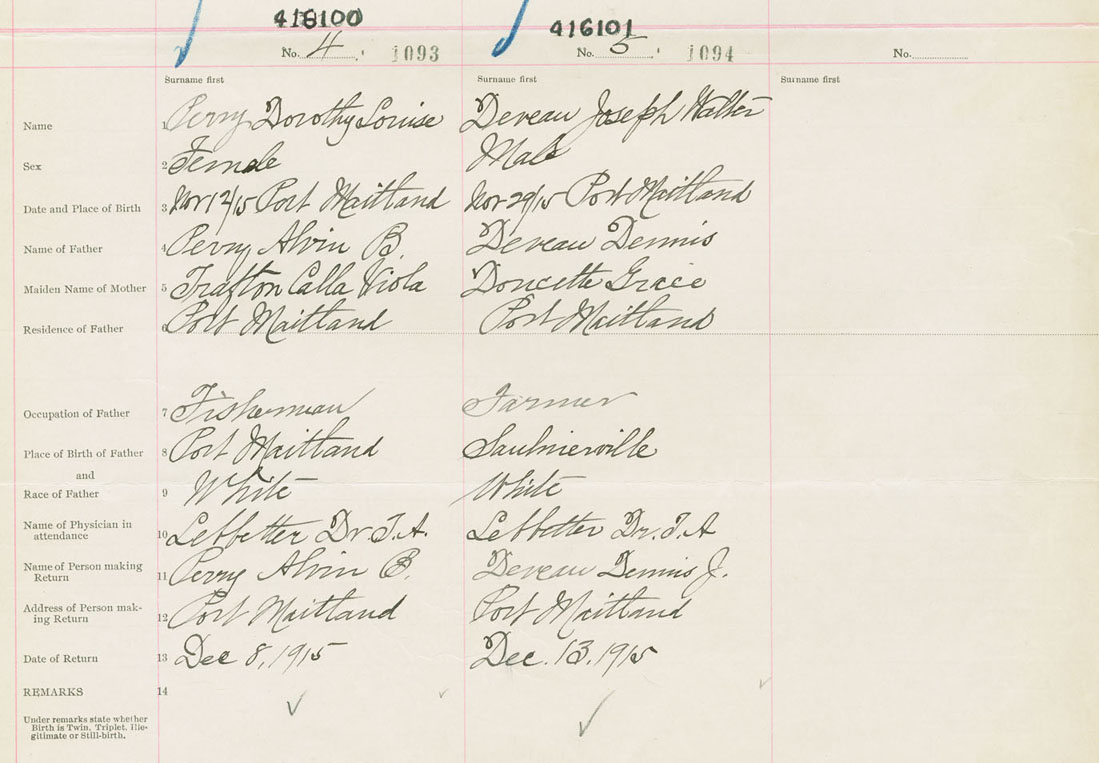 416100 416101
No. 4 1093 No. 5 1094 No.
Surname first Surname first Surname first
Name 1 Perry Dorothy Louise Deveau Joseph Walter
Sex 2 Female Male
Date and Place of Birth 3 Nov 12/15 Port Maitland Nov 29/15 Port Maitland
Name of Father 4 Perry Alvin B. Deveau Dennis
Maiden Name of Mother 5 Trafton Calla Viola Doucette Grace
Residence of Father 6 Port Maitland Port Maitland
Occupation of Father 7 Fisherman Farmer
Place of Birth of Father 8 Port Maitland Saulnierville
and
Race of Father 9 White White
Name of Physician in
attendance 10 Lebbetter Dr. J.A. Lebbetter Dr. J.A
Name of Person making
Return 11 Perry Alvin B. Deveau Dennis J.
Address of Person mak-
ing Return 12 Port Maitland Port Maitland
Date of Return 13 Dec 8, 1915 Dec. 13. 1915
REMARKS 14
Under remarks state whether
Birth is Twin, Triplet, Ille-
gitimate or Still-birth.